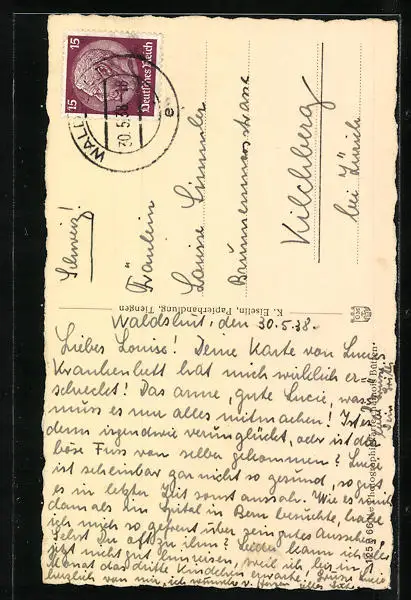 15
15
Deutsches Reich
WALD
30.5.38
e
Schweiz!
Fräulein
Louise Simmler
Brunnenmoosstrasse
Kilchberg
bei Zürich
K. Eiselin, Papierhandlung, Tiengen
Waldshut, den 30.5.38.
Liebes Louise! Deine Karte von Lucies
Krankenbett hat mich wirklich er-
schreckt! Das arme, gute Lucie, was
muss es nur alles mitmachen! Ist es
denn irgendwie verunglückt, oder ist der
böse Fuss von selber gekommen? Lucie
ist scheinbar gar nicht so gesund, so gut
es in letzter Zeit sonst aussah. Wie es mich
damals im Spital in Bern besuchte, habe
ich mich so gefreut über sein gutes Aussehen.
Gehst Du oft zu ihm? Leider kann ich
jetzt nicht gut hinreisen, weil ich hier in
Monat das dritte Kindchen erwarte! Grüsse Lucie
herzlich von mir, ich wünsche v. Herzen alles Gute.